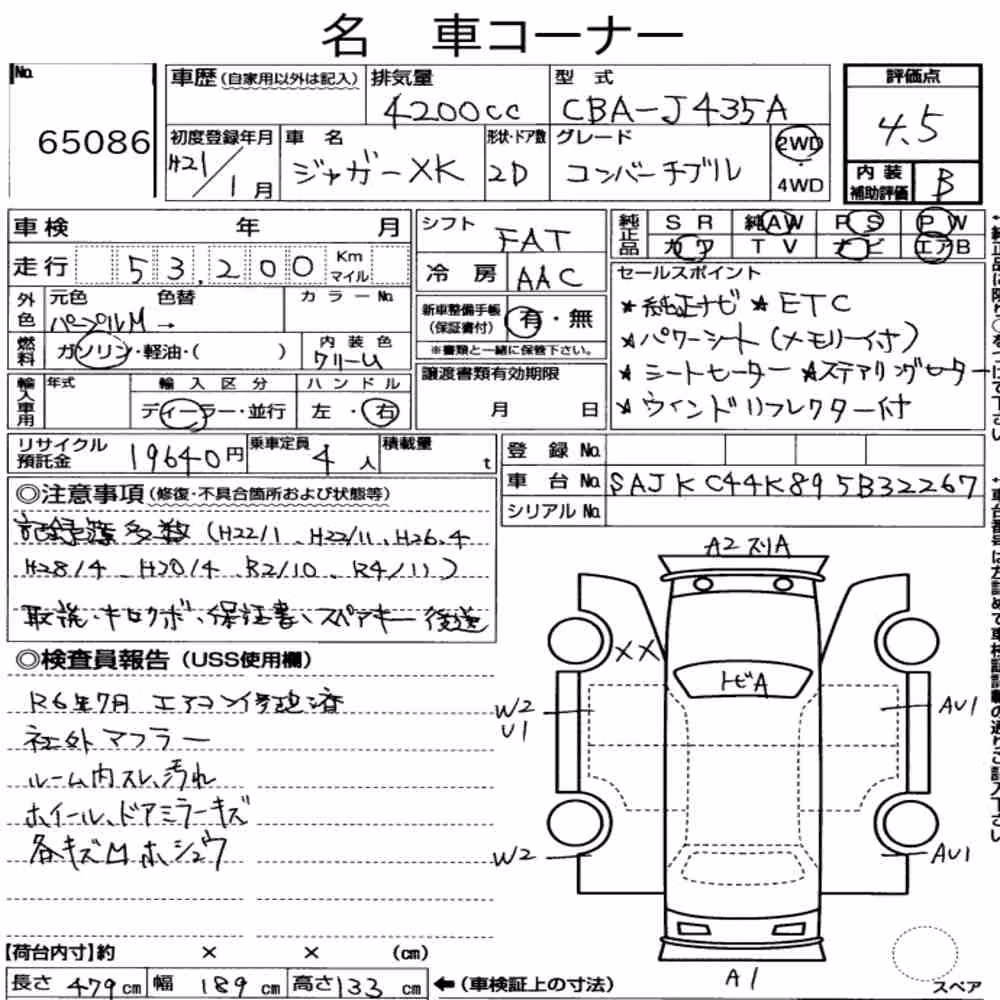 名 車コーナー
No. 65086
車歴 (自家用以外は記入)
排気量 4200cc
型式 CBA-J435A
評価点 4.5
初度登録年月 H21/1月
車名 ジャガーXK
形状・ドア数 2D
グレード コンバーチブル
2WD ・ 4WD
内装補助評価 B
車検 年 月
シフト FAT
純正品 SR 純AW PS PW
カワ TV ナビ エアB
走行 53,200 Km マイル
冷房 AAC
セールスポイント
★純正ナビ ★ETC
★パワーシート(メモリー付)
★シートヒーター ★ステアリングヒーター
★ウィンドリフレクター付
外色 元色 色替 カラーNo.
パープルM →
新車整備手帳(保証書付) 有・無
※書類と一緒に保管下さい。
燃料 ガソリン・軽油・( )
内装色 クリーム
譲渡書類有効期限
月 日
輸入車用 年式 輸入区分 ハンドル
ディーラー・並行 左・右
リサイクル預託金 19640円
乗車定員 4人
積載量 t
登録No.
車台No. SAJKC44K895B32267
シリアルNo.
◎注意事項 (修復・不具合箇所および状態等)
記録簿多数(H22/1、H22/11、H26.4
H28/4、H30/4、R2/10、R4/11)
取説・キロクボ・保証書・スペアキー後送
◎検査員報告 (USS使用欄)
R6年7月 エアコン修理済
社外マフラー
ルーム内スレ、汚れ
ホイール、ドアミラーキズ
各キズMホシュウ
A2スリA
XX
トビA
W2
U1
AU1
W2
AU1
A1
スペア
【荷台内寸】約 × × (cm)
長さ 479cm 幅 189cm 高さ 133cm ←(車検証上の寸法)